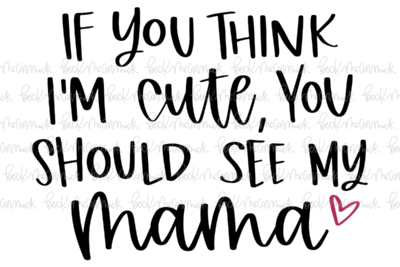 IF YOU THINK
I'M cute, YOU
SHOULD SEE MY
mama